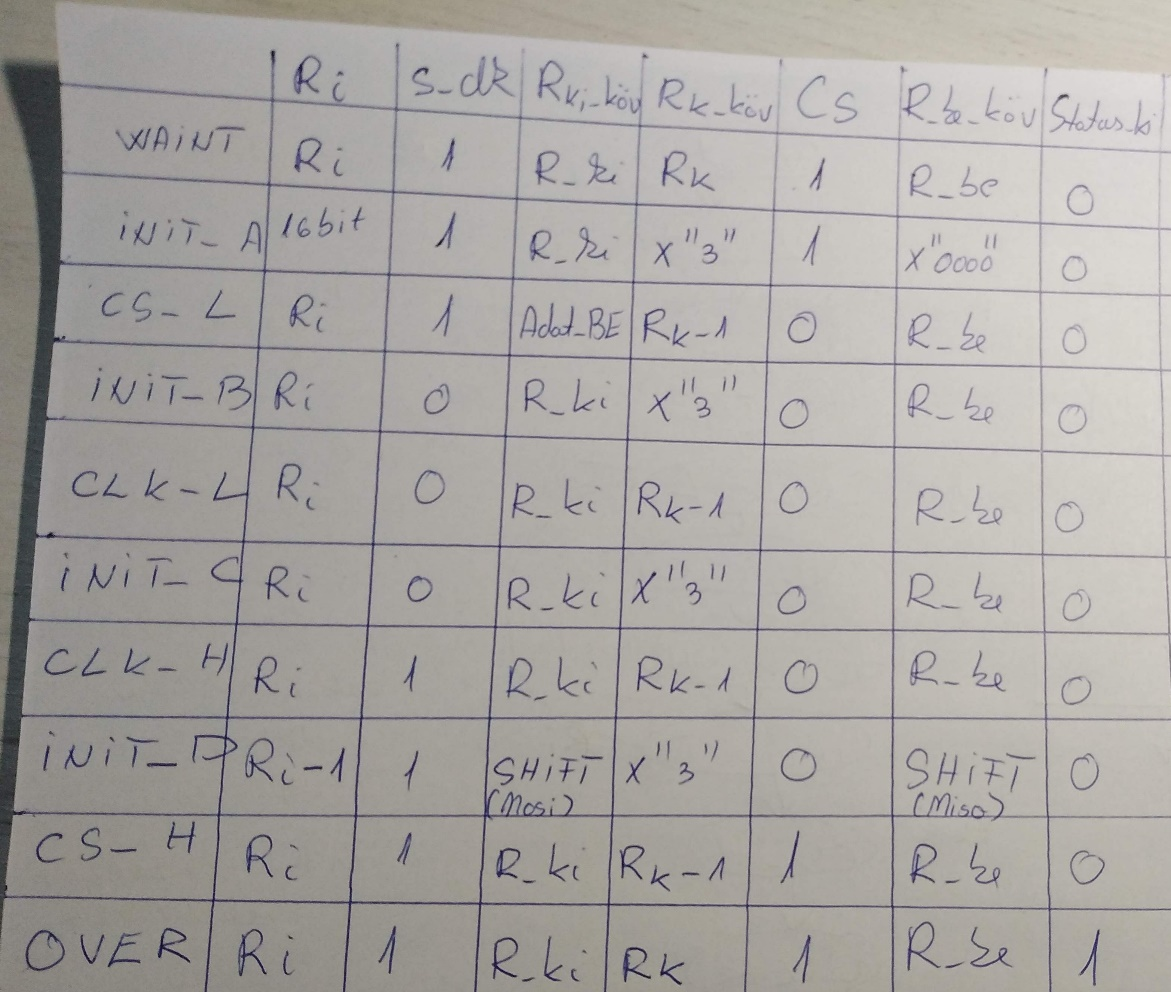 Ri S_clk Rki_köv Rk_köv Cs R_be_köv Status_ki
WAINT Ri 1 R_ki Rk 1 R_be 0
INIT_A 16bit 1 R_ki X"3" 1 X"0000" 0
CS_L Ri 1 Adat_BE Rk-1 0 R_be 0
INIT_B Ri 0 R_ki X"3" 0 R_be 0
CLK-L Ri 0 R_ki Rk-1 0 R_be 0
INIT_C Ri 0 R_ki X"3" 0 R_be 0
CLK-H Ri 1 R_ki Rk-1 0 R_be 0
INIT_D Ri-1 1 SHIFT X"3" 0 SHIFT 0
(Mosi) (Miso)
CS_H Ri 1 R_ki Rk-1 1 R_be 0
OVER Ri 1 R_ki Rk 1 R_be 1